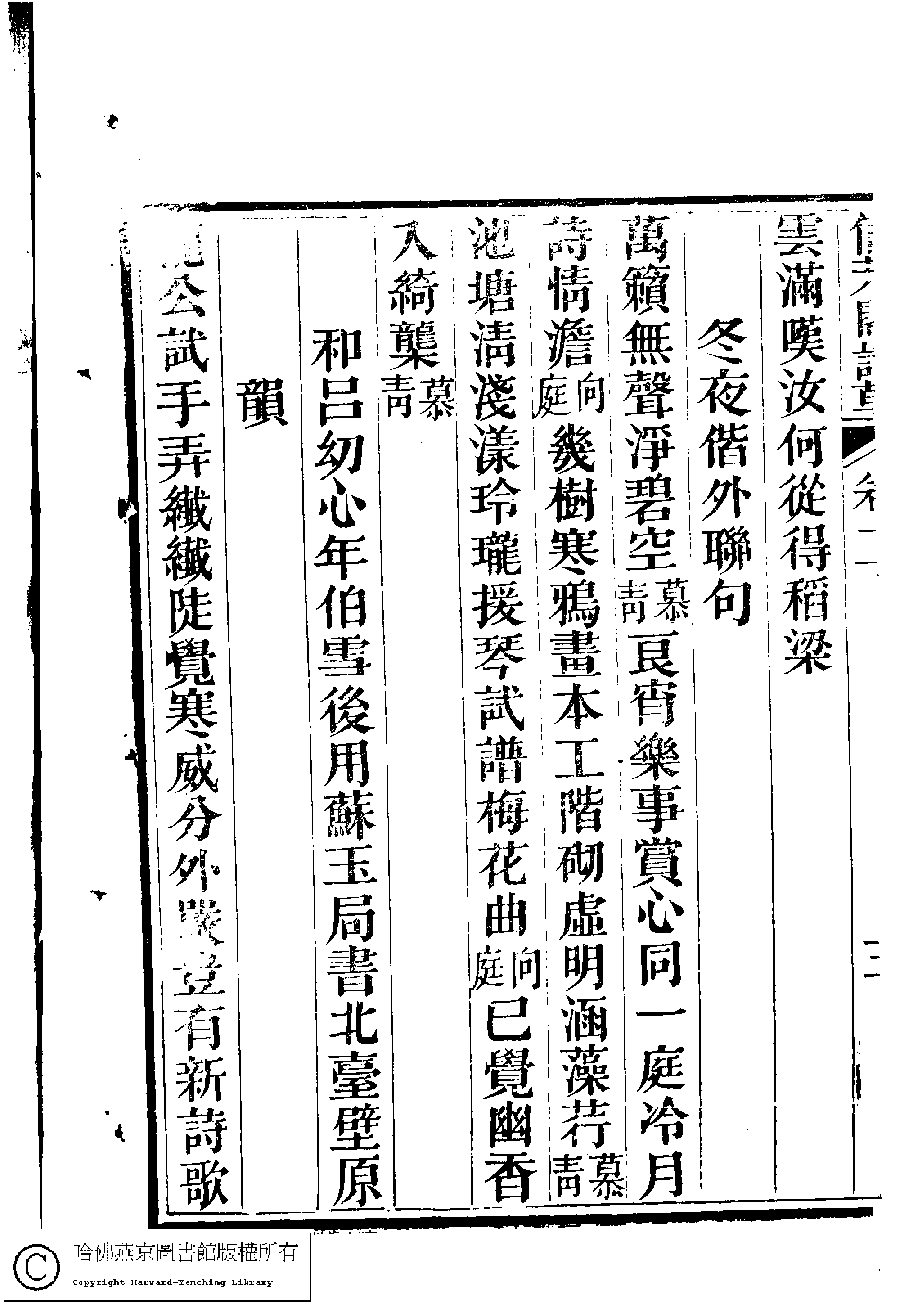 詩草 卷二 三
雲滿嘆汝何從得稻粱
冬夜偕外聯句
萬籟無聲淨碧空慕青良宵樂事賞心同一庭冷月
詩情澹向庭幾樹寒鴉畫本工階砌虛明涵藻荇慕青
池塘淸淺漾玲瓏援琴試譜梅花曲向庭已覺幽香
入綺櫳慕青
和呂幼心年伯雪後用蘇玉局書北臺壁原
韻
公試手弄纖纖陡覺寒威分外嚴豈有新詩歌
哈佛燕京圖書館版權所有
Copyright Harvard-Yenching Library